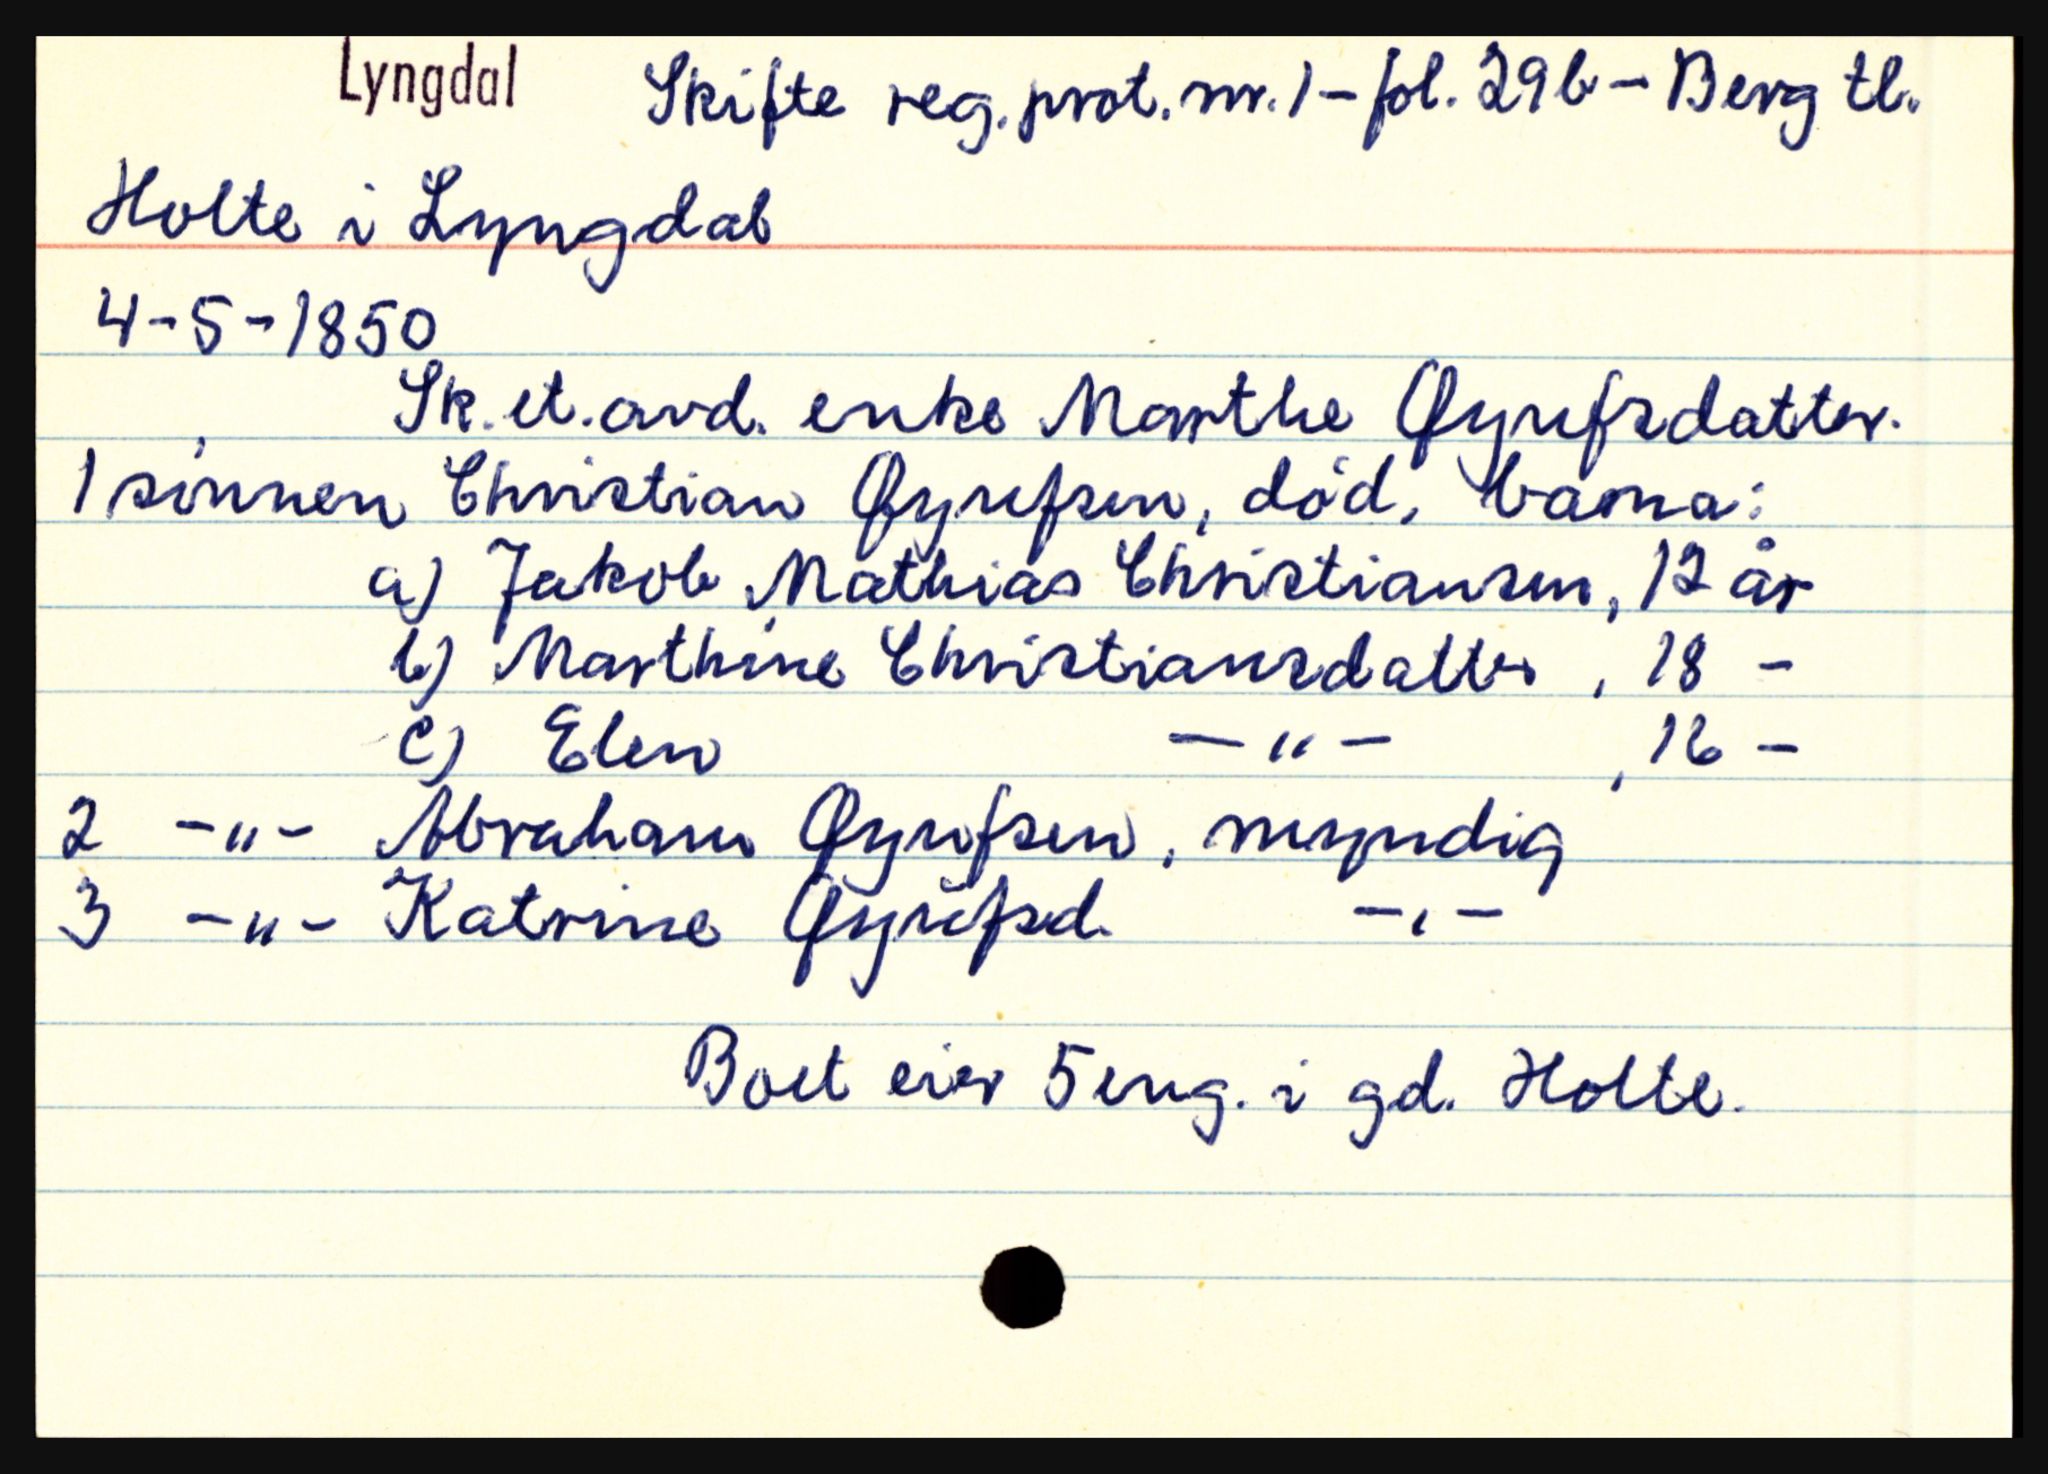 Lyngdal
Skifte reg. prot. nr. 1 - fol. 29b - Berg tl.
Holte i Lyngdal
4-5-1850
Sk. et. avd. enke Marthe Øyufsdatter.
1 sønnen Christian Øyufsen, død, barna:
a) Jakob Mathias Christiansen, 12 år
b) Marthine Christiansdatter, 18 -
c) Elen -"- , 16 -
2 -"- Abraham Øyufsen, myndig
3 -"- Katrine Øyufsd. -"-
Boet eier 5 eng. i gd. Holte.